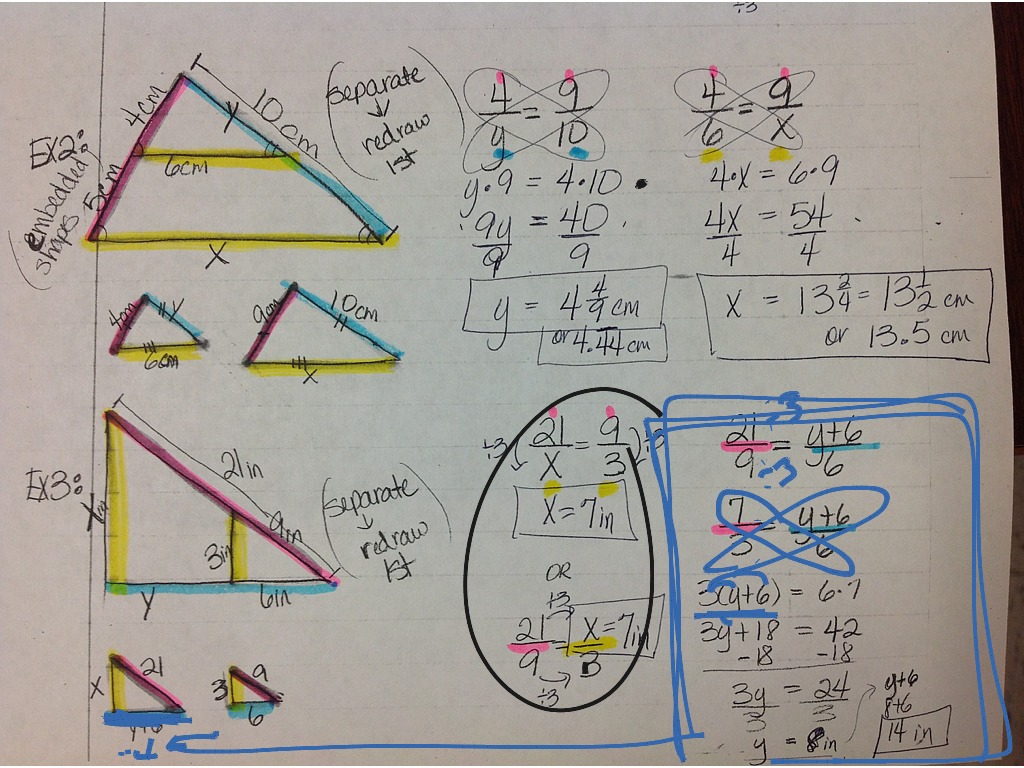 ÷3
Ex2:
(embedded
shapes
4cm
5cm
y
10cm
6cm
x
(separate
↓
redraw
1st)
4/y = 9/10
y•9 = 4•10
9y/9 = 40/9
y = 4 4/9 cm
or 4.44 cm
4/6 = 9/x
4•x = 6•9
4x/4 = 54/4
x = 13 2/4 = 13 1/2 cm
or 13.5 cm
4cm
y
6cm
9cm
10cm
x
Ex3:
21in
9in
3in
y
6in
(separate
↓
redraw
1st)
÷3 21/x = 9/3 ÷3
x = 7in
OR
÷3
21/9 = x/3 x = 7in
÷3
÷3
21/9 = y+6/6
÷3
7/3 = y+6/6
3(y+6) = 6•7
3y+18 = 42
-18 -18
3y/3 = 24/3
y = 8in
y+6
8+6
14 in
x
21
y+6
3
9
6